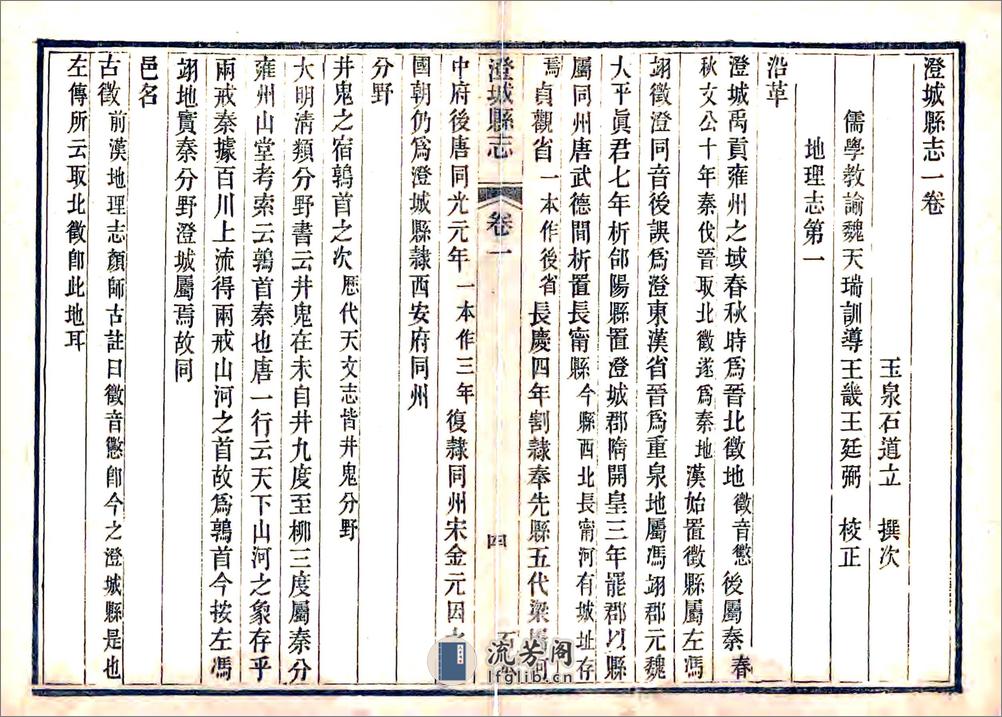 澄城縣志一卷
玉泉石道立 撰次
儒學教諭魏天瑞訓導王畿王廷弼 校正
地理志第一
沿革
澄城禹貢雍州之域春秋時為晉北徵地 徵音懲 後屬秦 春
秋文公十年秦伐晉取北徵遂為秦地 漢始置徵縣屬左馮
翊徵澄同音後誤為澄東漢省晉為重泉地屬馮翊郡元魏
太平真君七年析郃陽縣置澄城郡隋開皇三年罷郡以縣
屬同州唐武德間析置長甯縣 今縣西北長甯河有城址存
焉 貞觀省 一本作後省 長慶四年割隸奉先縣五代梁
中府後唐同光元年 一本作三年 復隸同州宋金元因之
國朝仍為澄城縣隸西安府同州
分野
井鬼之宿鶉首之次 歷代天文志皆井鬼分野
大明清類分野書云井鬼在未自井九度至柳三度屬秦分
雍州山堂考索云鶉首秦也唐一行云天下山河之象存乎
兩戒秦據百川上流得兩戒山河之首故為鶉首今按左馮
翊地實秦分野澄城屬焉故同
邑名
古徵 前漢地理志顏師古註曰徵音懲卽今之澄城縣是也
左傳所云取北徵卽此地耳
澄城縣志 卷一 四
流芳阁
lfglib.cn